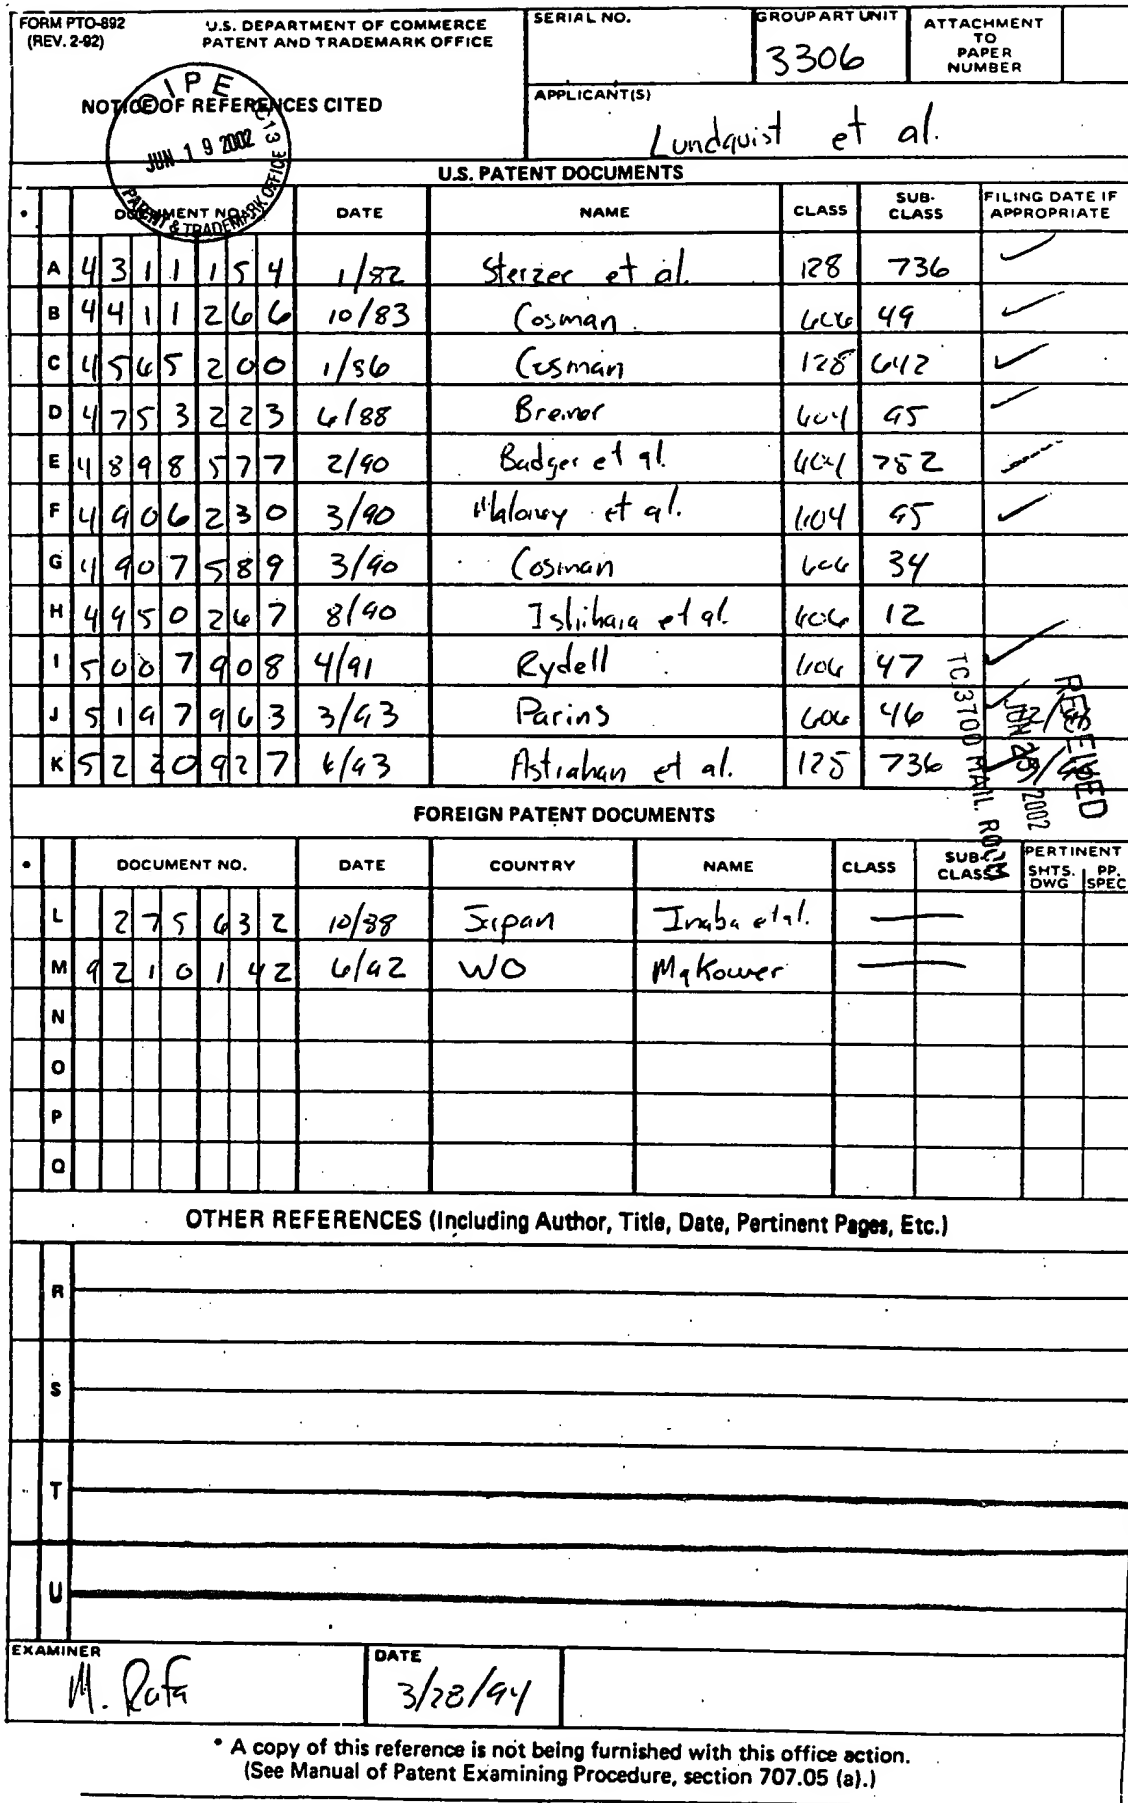 FORM PTO-892 U.S. DEPARTMENT OF COMMERCE SERIAL NO. GROUP ART UNIT ATTACHMENT
(REV. 2-92) PATENT AND TRADEMARK OFFICE 3306 TO
PAPER
NUMBER
NOTICE OF REFERENCES CITED
OIPE JC13
JUN 19 2002
PATENT & TRADEMARK OFFICE
APPLICANT(S)
Lundquist et al.
U.S. PATENT DOCUMENTS
* DOCUMENT NO. DATE NAME CLASS SUB-CLASS FILING DATE IF APPROPRIATE
A 4311154 1/82 Sterzer et al. 128 736
B 4411266 10/83 Cosman 606 49
C 4565200 1/86 Cosman 128 642
D 4753223 6/88 Bremer 604 95
E 4898577 2/90 Badger et al. 604 782
F 4906230 3/90 Maloney et al. 604 95
G 4907589 3/90 Cosman 606 34
H 4950267 8/90 Ishihara et al. 606 12
I 5007908 4/91 Rydell 606 47
J 5197963 3/93 Parins 606 46
K 5220927 6/93 Astrahan et al. 128 736
RECEIVED
JUN 2002
TC 3700 MAIL ROOM
FOREIGN PATENT DOCUMENTS
* DOCUMENT NO. DATE COUNTRY NAME CLASS SUB-CLASS PERTINENT
SHTS. DWG PP. SPEC
L 275632 10/88 Japan Inaba et al.
M 9210142 6/92 WO Makower
N
O
P
Q
OTHER REFERENCES (Including Author, Title, Date, Pertinent Pages, Etc.)
R
S
T
U
EXAMINER DATE
M. 3/28/94
* A copy of this reference is not being furnished with this office action.
(See Manual of Patent Examining Procedure, section 707.05 (a).)